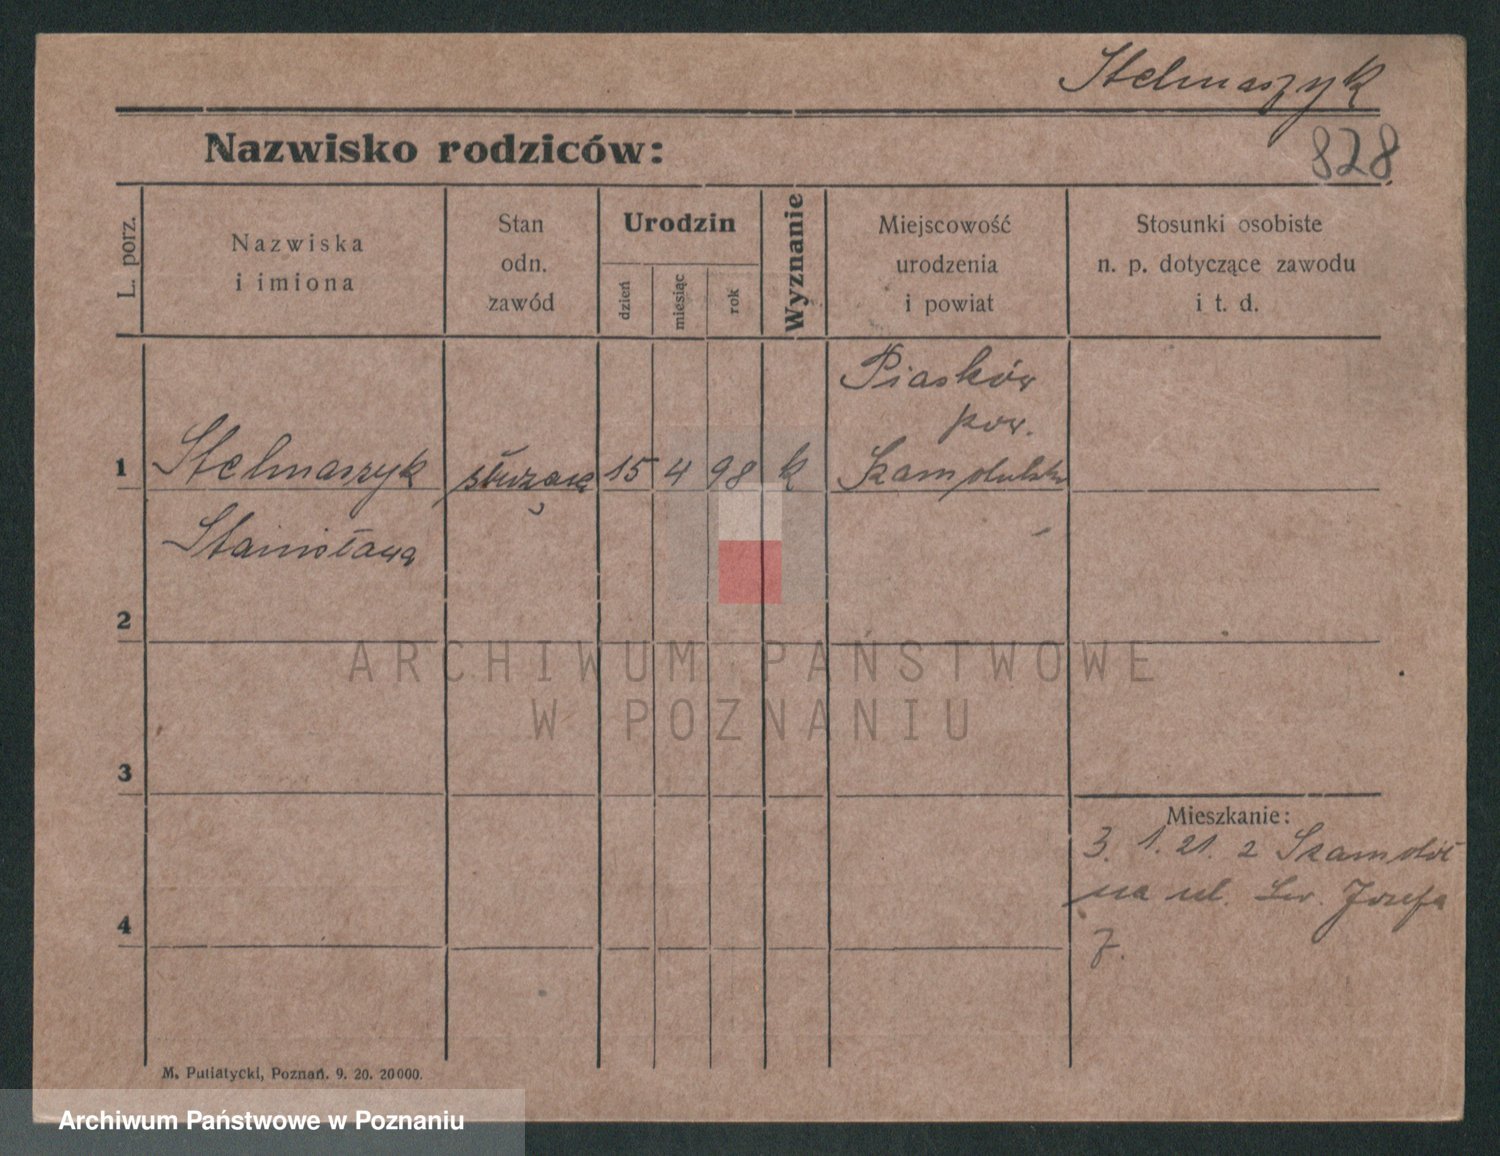 Stelmaszyk
Nazwisko rodziców:
828
L. porz.
Nazwiska
i imiona
Stan
odn.
zawód
Urodzin
dzień
miesiąc
rok
Wyznanie
Miejscowość
urodzenia
i powiat
Stosunki osobiste
n. p. dotyczące zawodu
i t. d.
Piasków
pow.
1 Stelmaszyk służąca 15 4 98 k Szamotulski
Stanisława
2
ARCHIWUM PAŃSTWOWE
W POZNANIU
3
Mieszkanie:
3. 1. 21. z Szamotuł
na ul. Św. Józefa
7.
4
M. Putiatycki, Poznań. 9. 20. 20000.
Archiwum Państwowe w Poznaniu